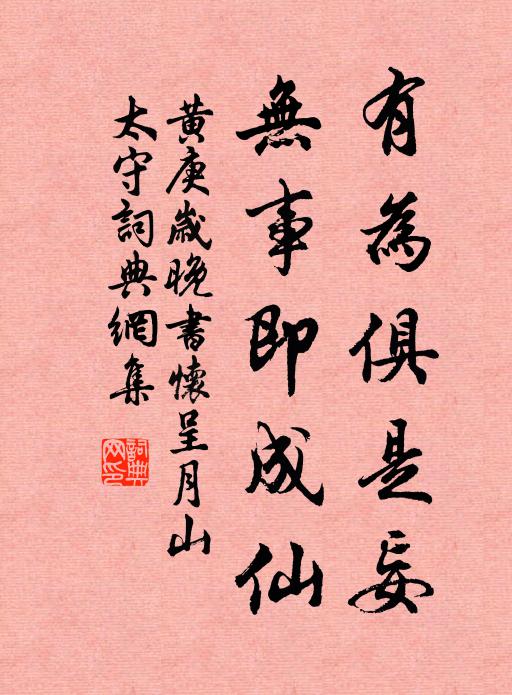 有為俱是妄
無事即成仙
黄庚歲晚書懷呈月山
太守詞典網集
詞典
网印